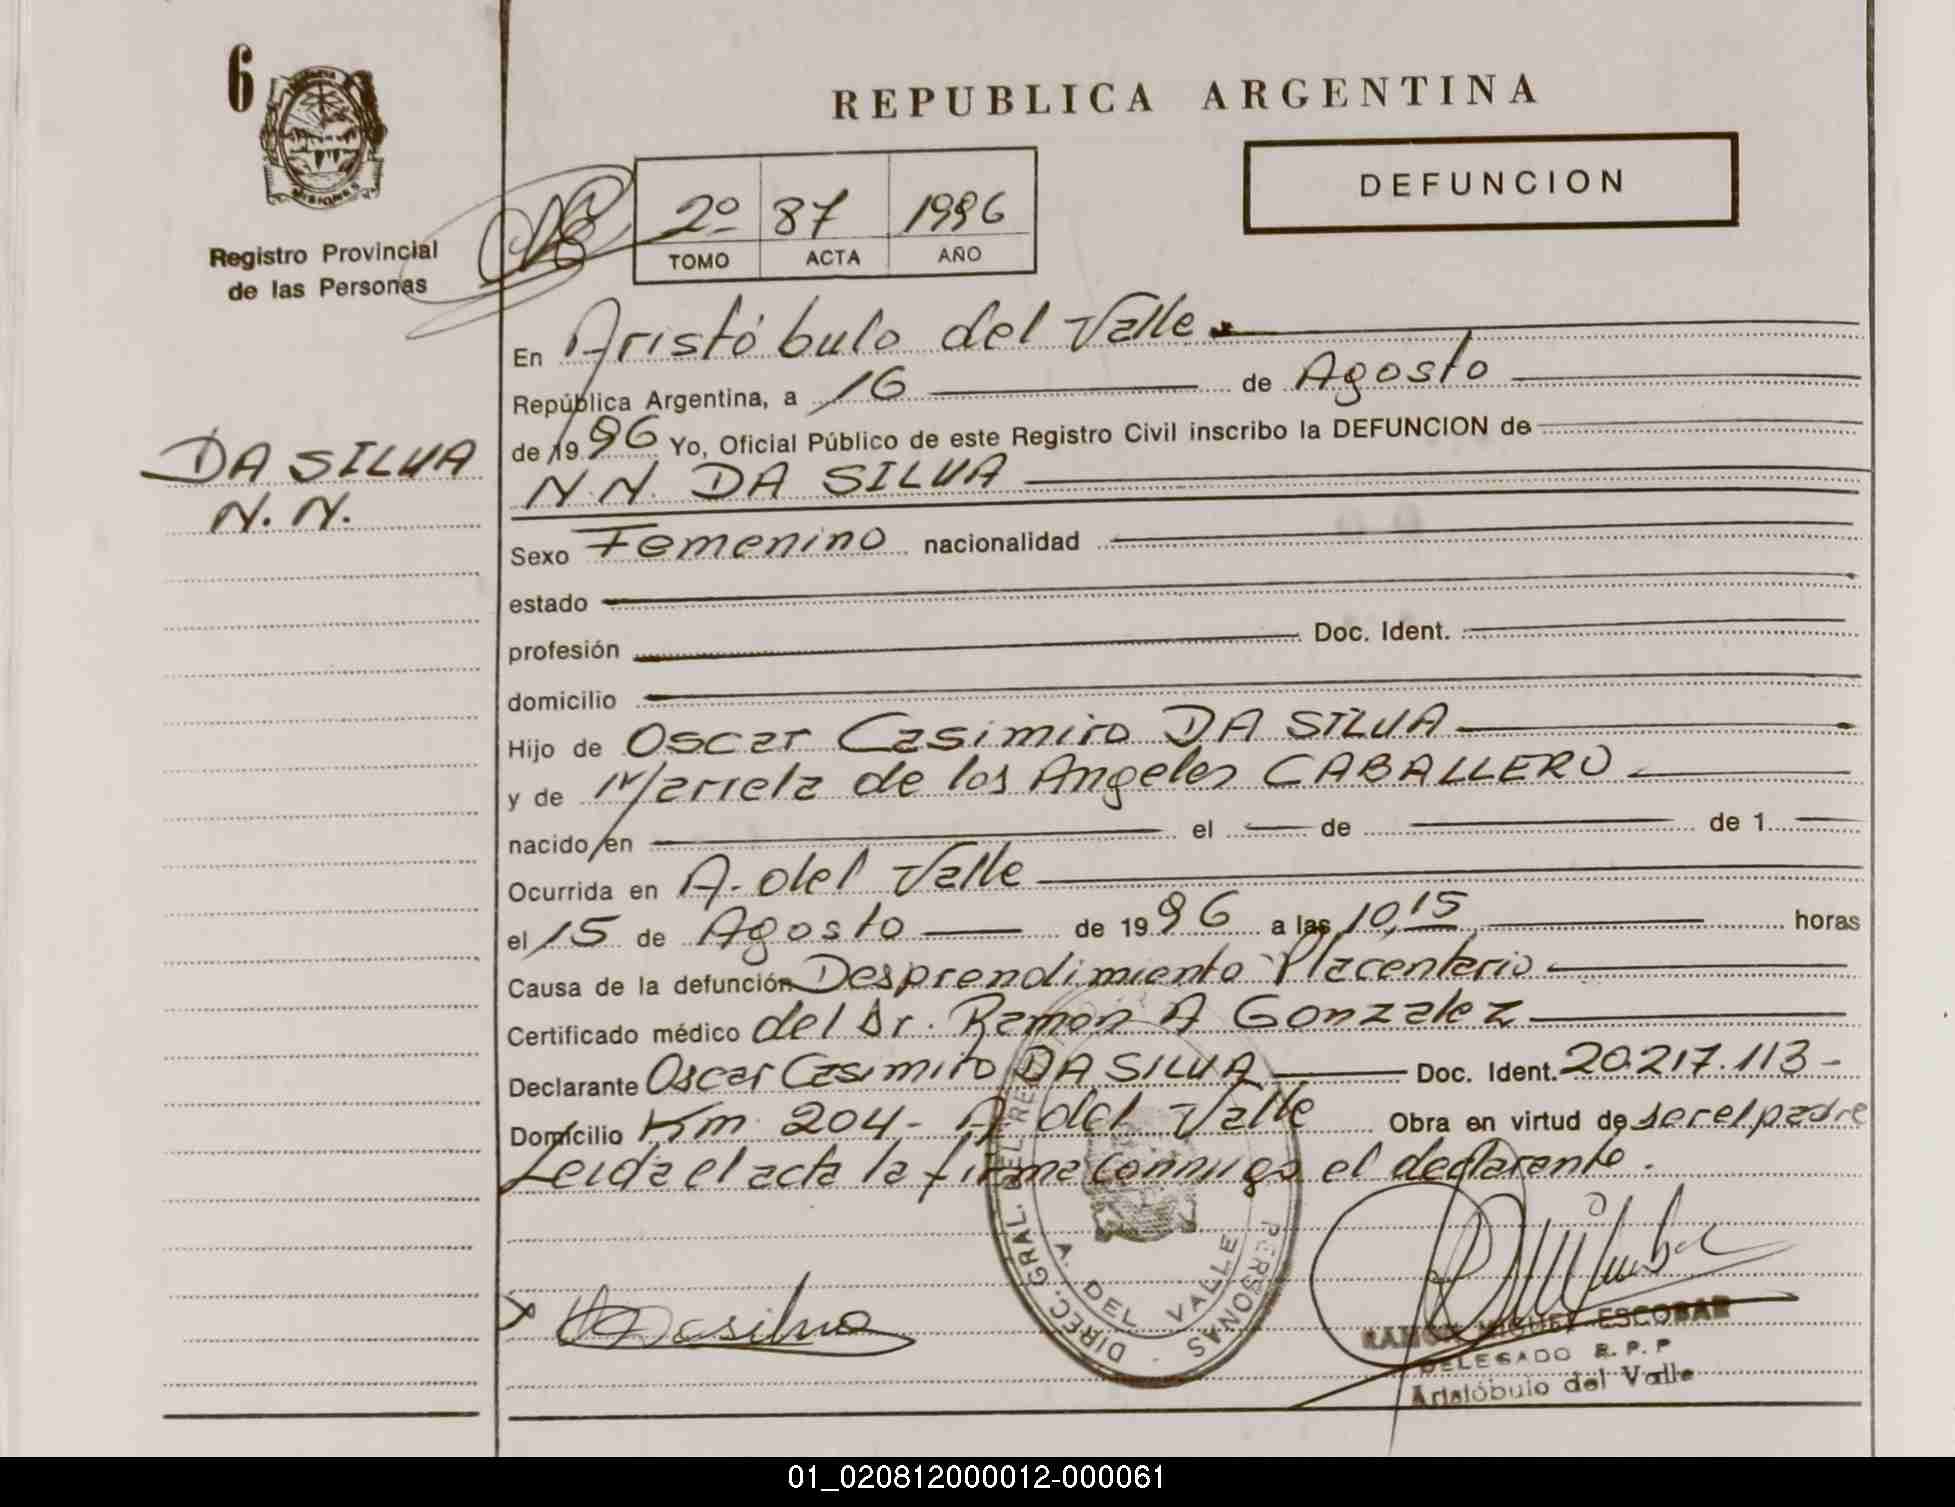 6
MISIONES
Registro Provincial
de las Personas
REPUBLICA ARGENTINA
DEFUNCION
2º 87 1996
TOMO ACTA AÑO
DA SILVA
N. N.
En Aristóbulo del Valle
República Argentina, a 16 de Agosto
de 1996 Yo, Oficial Público de este Registro Civil inscribo la DEFUNCION de
N.N. DA SILVA
Sexo Femenino nacionalidad
estado
profesión Doc. Ident.
domicilio
Hijo de Oscar Casimiro DA SILVA
y de Mariela de los Angeles CABALLERO
nacido en el de de 1
Ocurrida en A. del Valle
el 15 de Agosto de 1996 a las 10,15 horas
Causa de la defunción Desprendimiento Placentario
Certificado médico del Dr. Ramon A Gonzalez
Declarante Oscar Casimiro DA SILVA Doc. Ident. 20.217.113-
Domicilio Km 204- A del Valle Obra en virtud de ser el padre
Leida el acta la firma conmigo el declarante.
DIREC. GRAL. DEL REG. PERSONAS
A. DEL VALLE
Dasilva
RAMON MIGUEL ESCOBAR
DELEGADO R. P. P
Aristóbulo del Valle
01_020812000012-000061